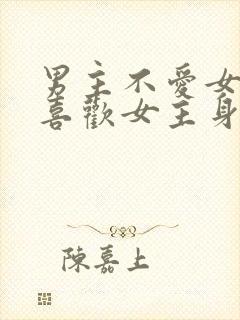 男主不愛女
喜歡女主身
陳嘉上